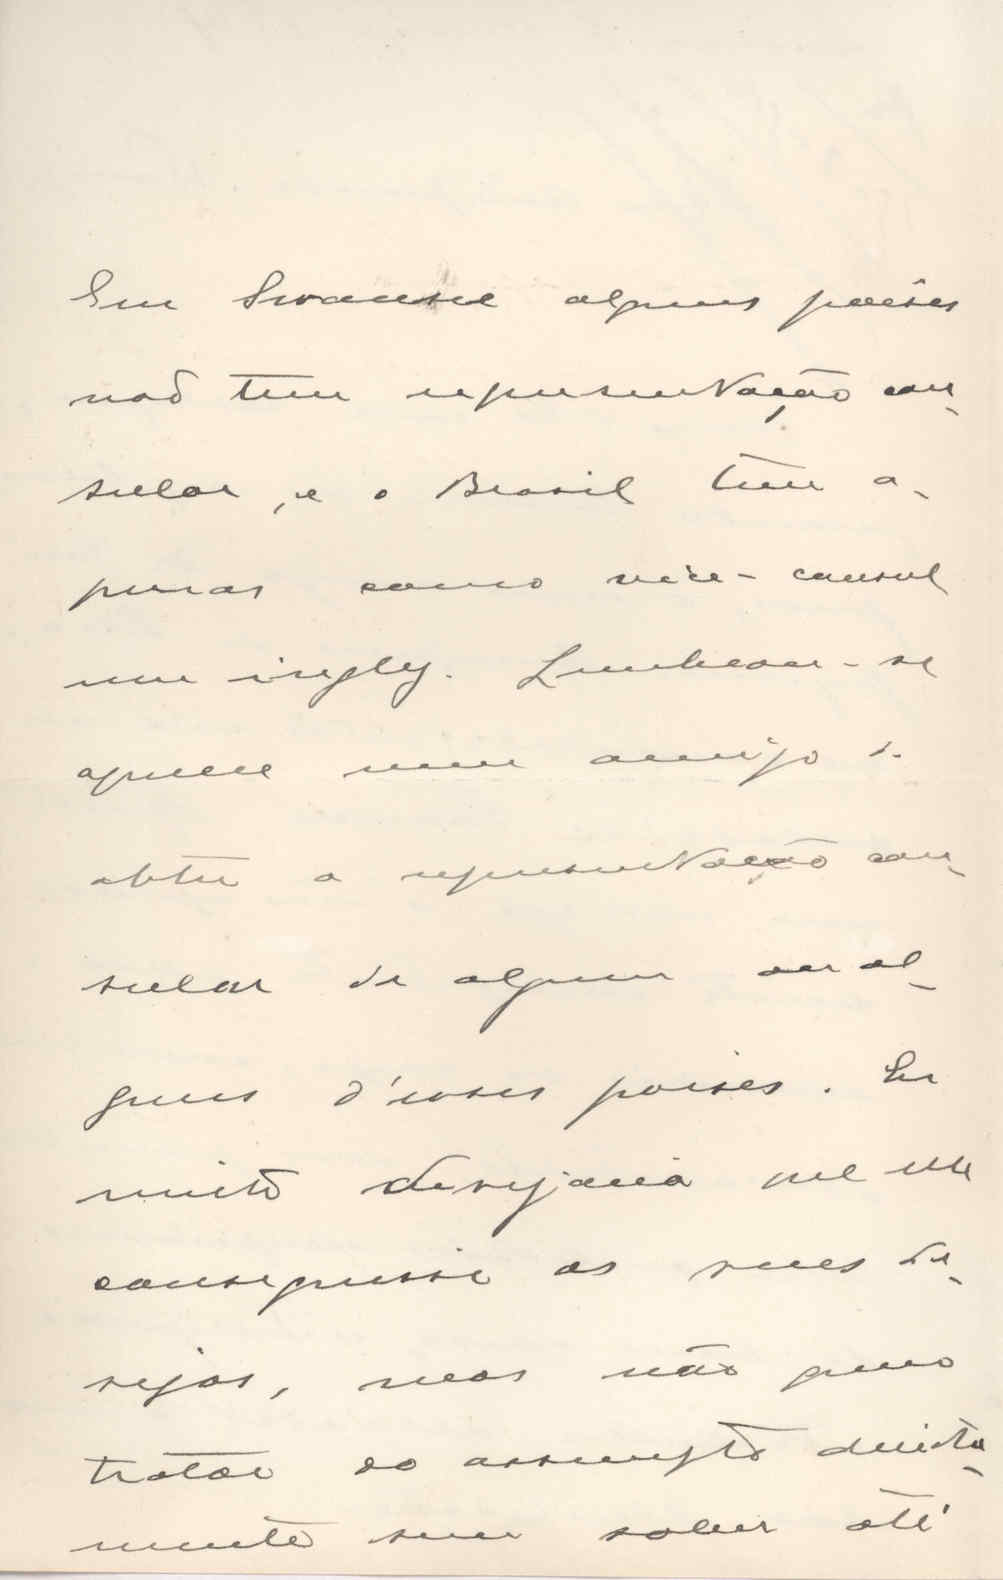 Em Swansea alguns paises
não tem representação con-
sular, e o Brasil tem a-
penas como vice-consul
um inglez. Lembrou-se
aquelle meu amigo de
obter a representação con-
sular de algum ou al-
guns d'esses paises. Eu
muito desejaria que elle
conseguisse os seus de-
sejos, mas não quero
tratar do assumpto directa-
mente sem saber até